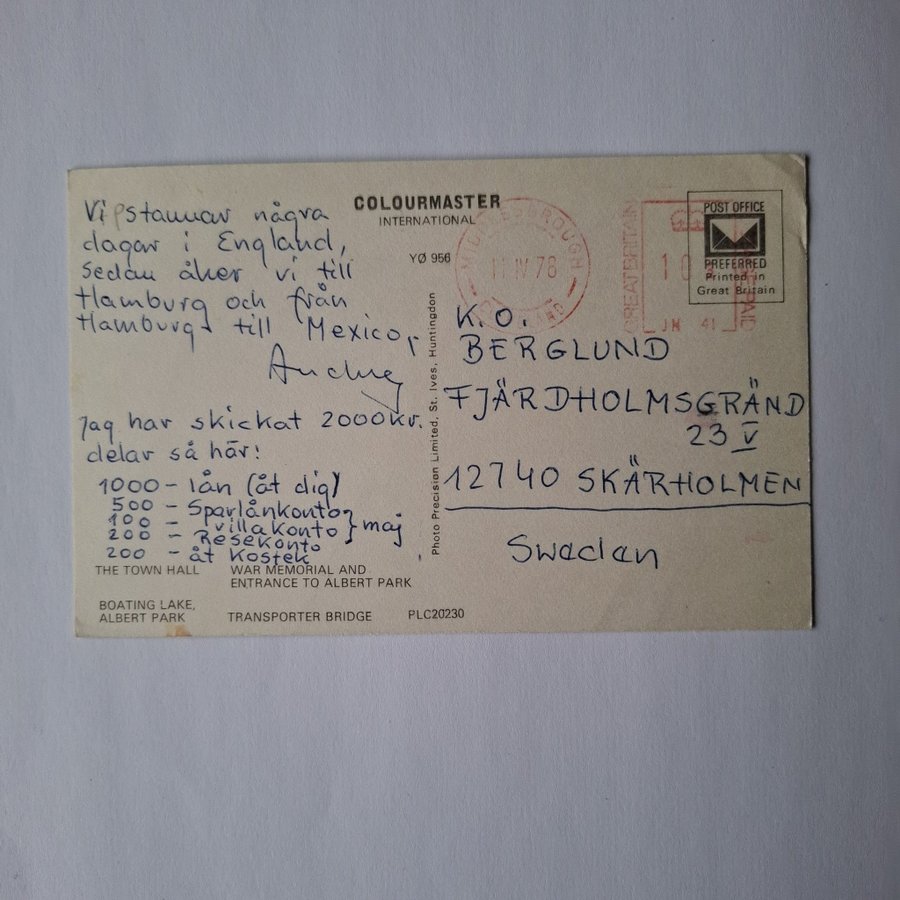 COLOURMASTER
INTERNATIONAL
YØ 956
Vi stannar några
dagar i England,
sedan åker vi till
Hamburg och från
Hamburg till Mexico,
Jag har skickat 2000kr.
delar så här:
1000 - lån (åt dig)
500 - Sparlånkonto
100 - villakonto } maj
200 - Resekonto
200 - åt Kostek
THE TOWN HALL
WAR MEMORIAL AND
ENTRANCE TO ALBERT PARK
BOATING LAKE,
ALBERT PARK
TRANSPORTER BRIDGE
PLC20230
Photo Precision Limited, St. Ives, Huntingdon
MIDDLESBROUGH
11 IV 78
GREAT BRITAIN
PAID
POST OFFICE
PREFERRED
Printed in
Great Britain
K.O.
BERGLUND
FJÄRDHOLMSGRÄND
23 V
12740 SKÄRHOLMEN
Sweden